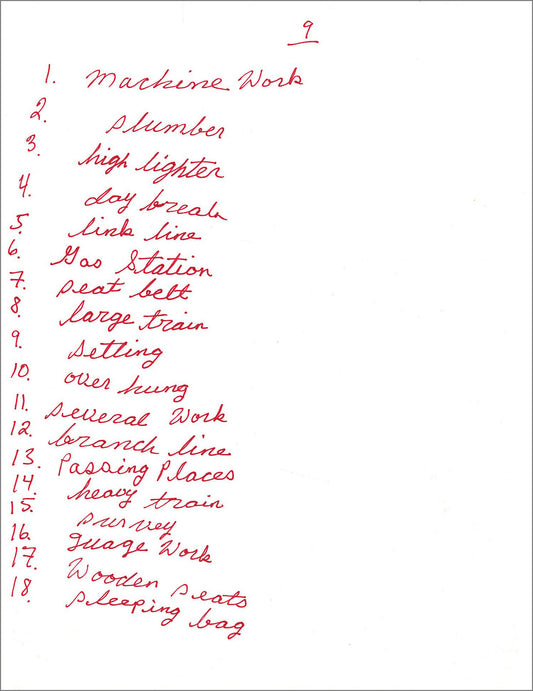 9
1. Machine Work
2. slumber
3. high lighter
4. day break
5. link line
6. Gas Station
7. seat belt
8. large train
9. setting
10. over hung
11. several Work
12. branch line
13. Passing Places
14. heavy train
15. survey
16. guage Work
17. Wooden seats
18. sleeping bag